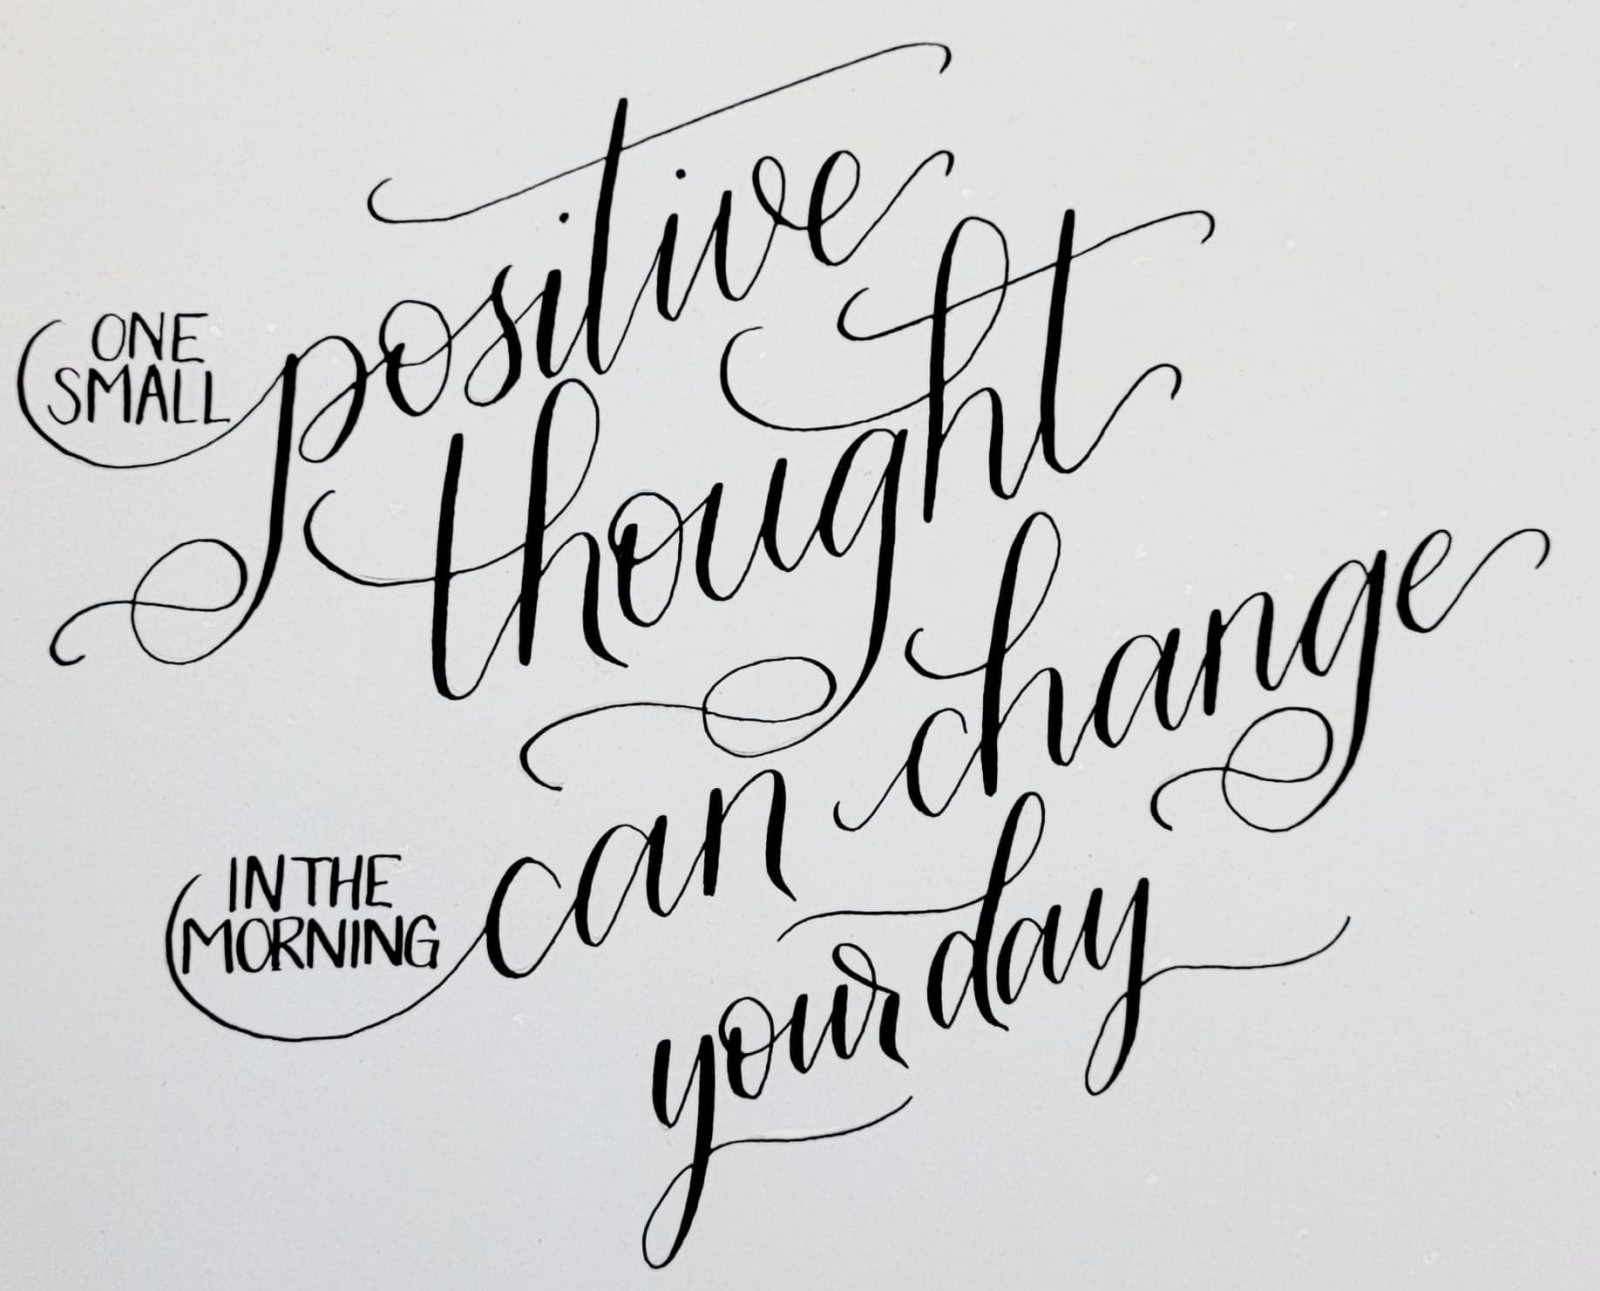 ONE
SMALL
positive
thought
IN THE
MORNING
can change
your day